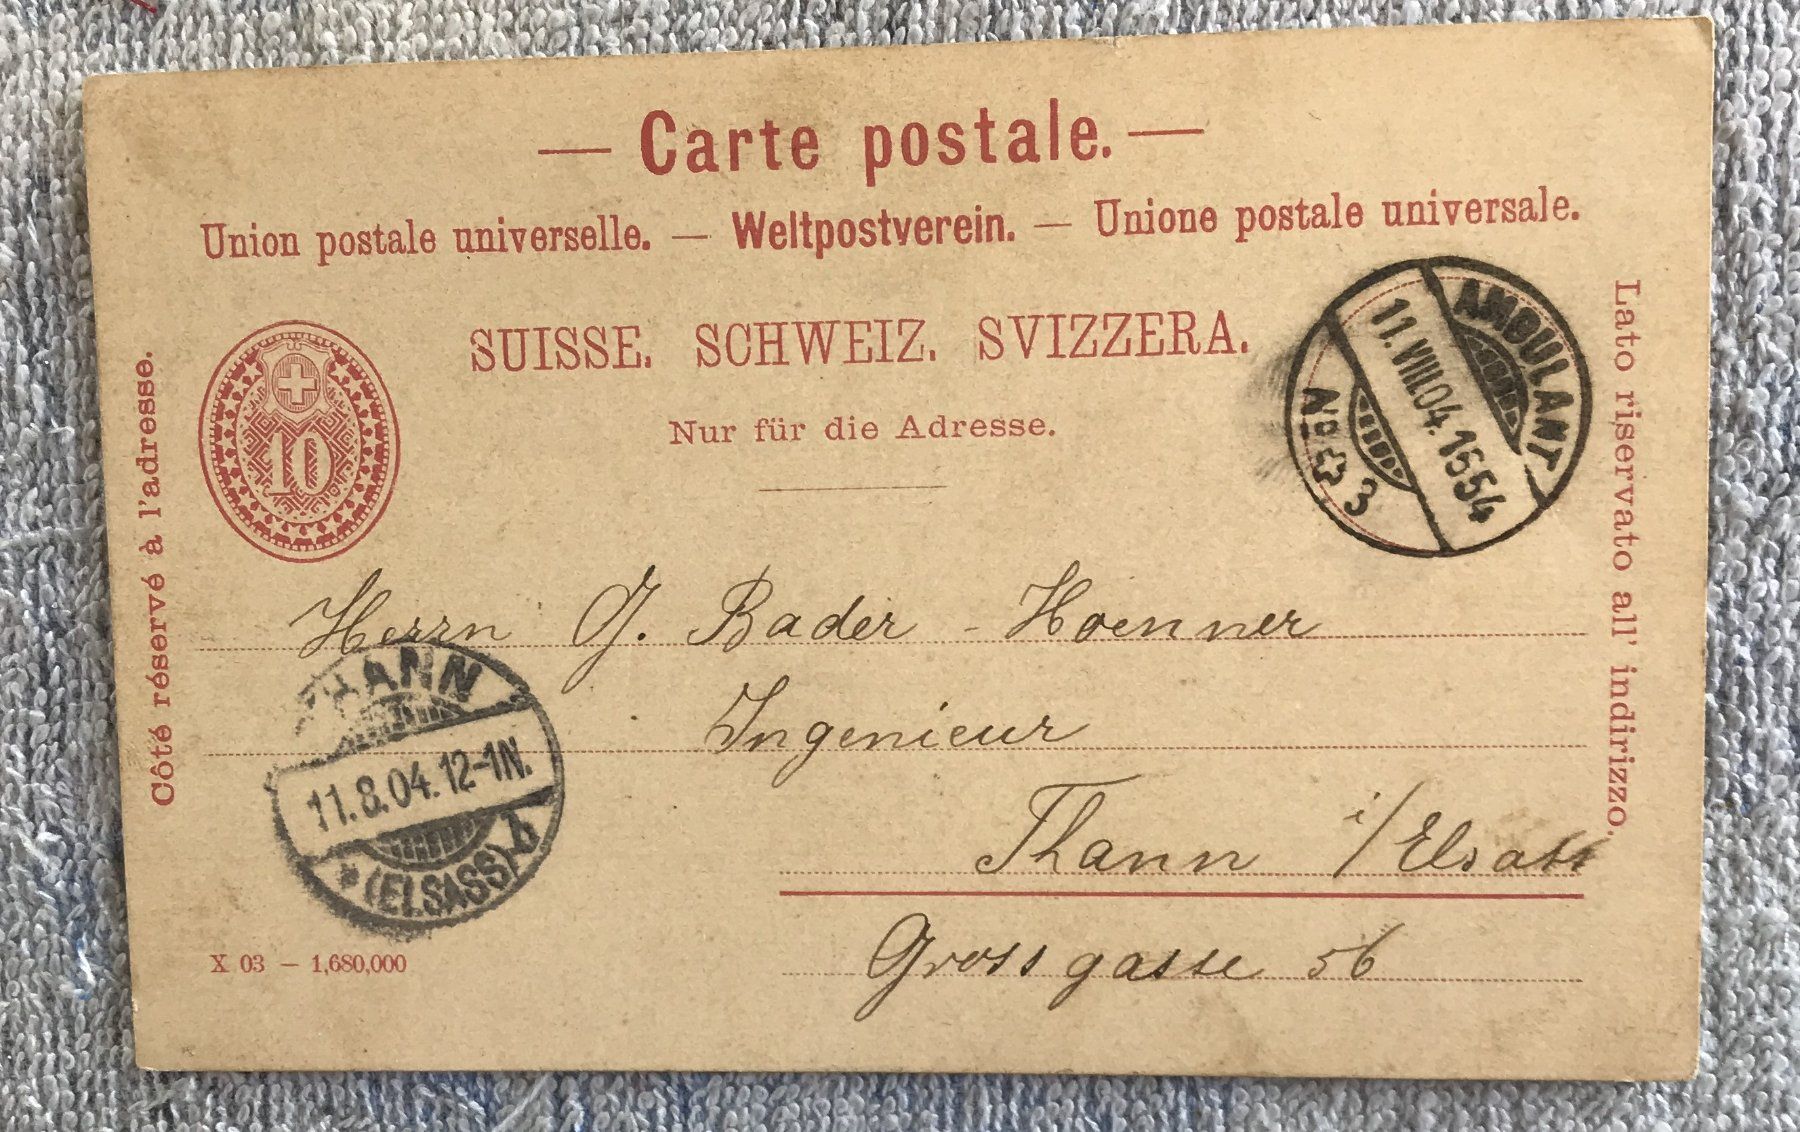 — Carte postale. —
Union postale universelle. — Weltpostverein. — Unione postale universale.
SUISSE. SCHWEIZ. SVIZZERA.
Nur für die Adresse.
Côté réservé à l'adresse.
Lato riservato all' indirizzo.
10
AMBULANT
11.VIII.04.1654
No 3
Herrn J. Bader - Hoenner
Ingenieur
Thann i/Elsass
Grossgasse 56
THANN
11.8.04.12-1N.
* (ELSASS) b
X 03 — 1,680,000